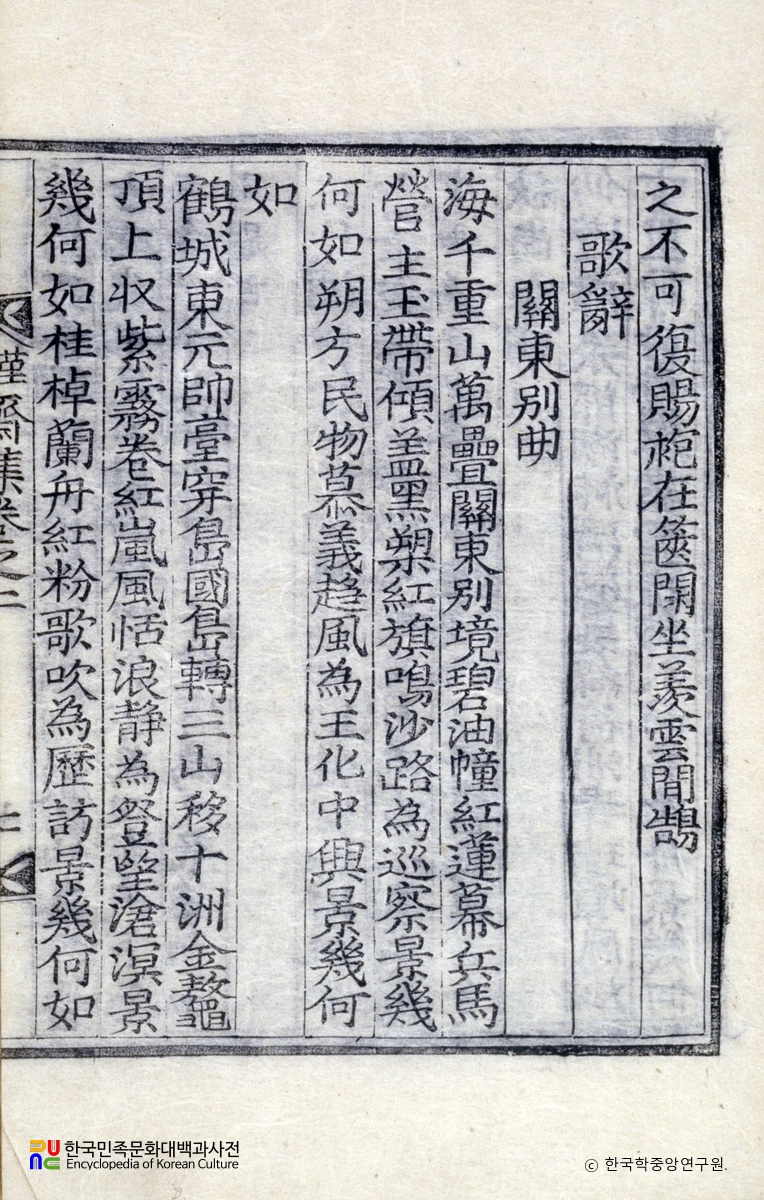 之不可復賜袍在篋閒坐羨雲間鵠
歌辭
關東別曲
海千重山萬疊關東別境碧油幢紅蓮幕兵馬
營主玉帶傾盖黑槊紅旗鳴沙路為巡察景幾
何如朔方民物慕義趍風為王化中興景幾何
如
鶴城東元帥臺穿島國島轉三山移十洲金鼇
頂上収紫霧卷紅嵐風恬浪静為登望滄溟景
幾何如桂棹蘭舟紅粉歌吹為歷訪景幾何如
謹齋集卷之二
한국민족문화대백과사전
Encyclopedia of Korean Culture
ⓒ 한국학중앙연구원.